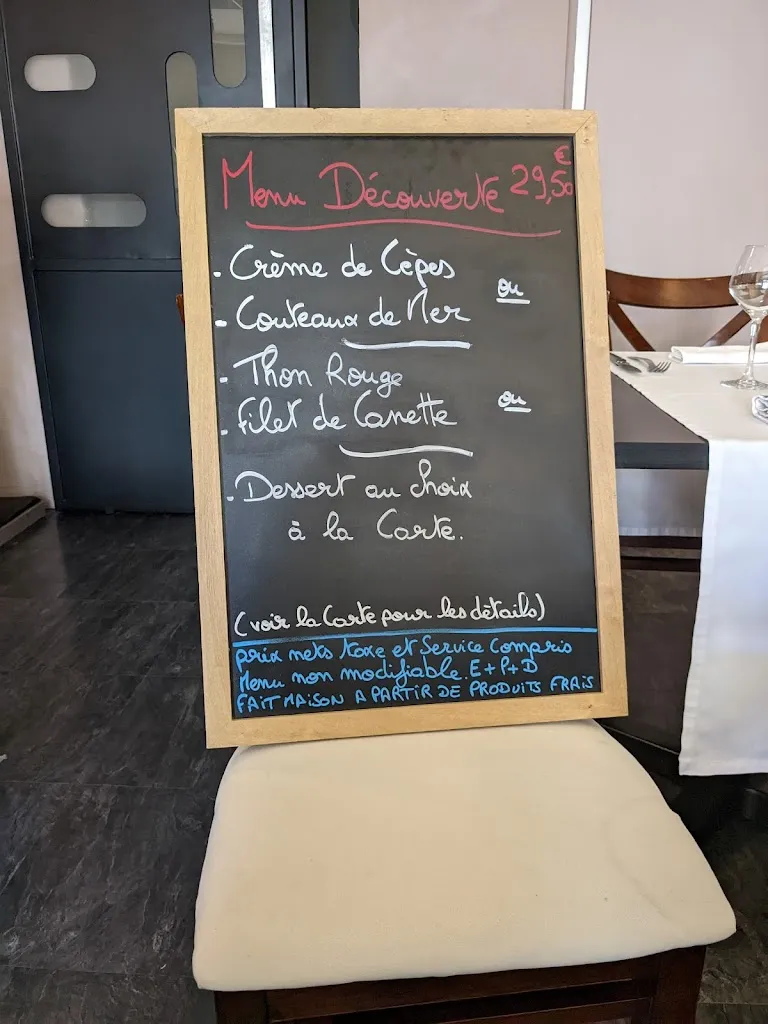 Menu Découverte 29,50 €
. Crème de Cèpes
ou
. Couteaux de Mer
. Thon Rouge
ou
. Filet de Canette
. Dessert au choix
à la Carte.
(voir la Carte pour les détails)
prix nets taxe et Service Compris
Menu non modifiable. E+P+D
FAIT MAISON A PARTIR DE PRODUITS FRAIS